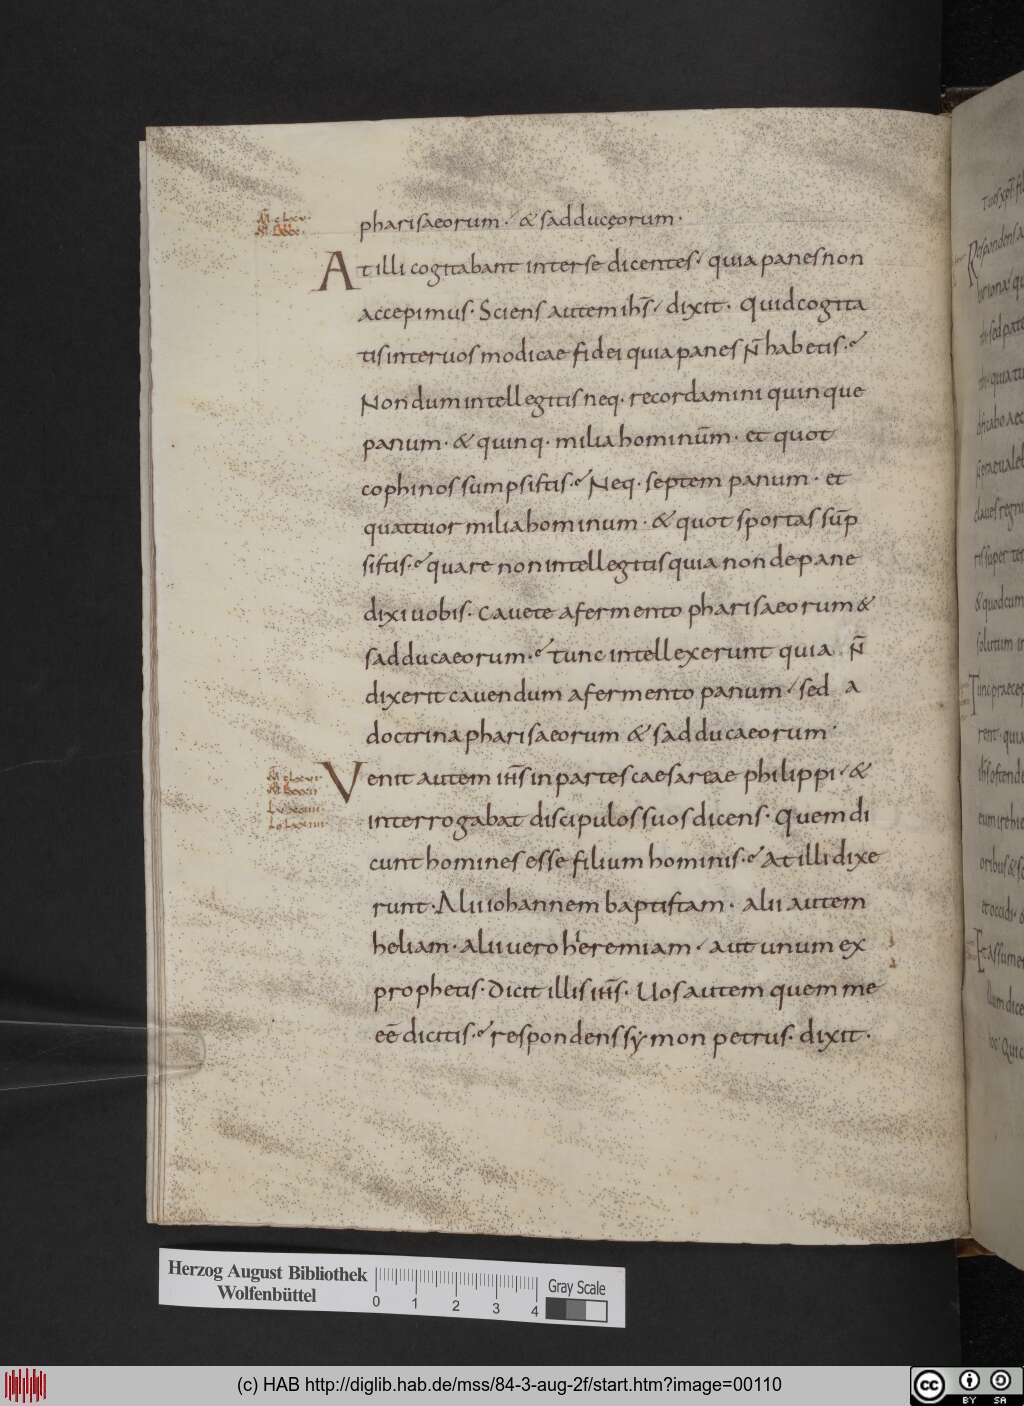 pharisaeorum · & sadducęorum ·
At illi cogitabant inter se dicentes · quia panes non
accepimus · Sciens autem ihs̄ · dixit · Quid cogita
tis inter uos modicae fidei quia panes N̄ habetis ·
Nondum intellegitis neq· recordamini quinque
panum · & quinq· milia hominūm · et quot
cophinos sumpsistis · Neq· septem panum · et
quattuor milia hominum · & quot sportas sūp
sistis · quare non intellegitis quia non de pane
dixi uobis · Cauete a fermento pharisaeorum &
sadducaeorum · tunc intellexerunt quia N̄
dixerit cauendum a fermento panum · sed a
doctrina pharisaeorum & sadducaeorum ·
M̄ clxvi
Venit autem ih̄s in partes caesareae philippi · &
interrogabat discipulos suos dicens · Quem di
cunt homines esse filium hominis · At illi dixe
runt · Alii iohannem baptistam · alii autem
heliam · alii uero hieremiam · aut unum ex
prophetis · Dicit illis ih̄s · Uos autem quem me
eē dicitis · respondens symon petrus · dixit ·
Herzog August Bibliothek
Wolfenbüttel
0 1 2 3 4
Gray Scale
(c) HAB http://diglib.hab.de/mss/84-3-aug-2f/start.htm?image=00110
cc BY SA